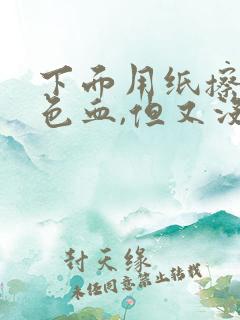 下而用纸擦
色血,但又没
封天缘
未经同意禁止转载